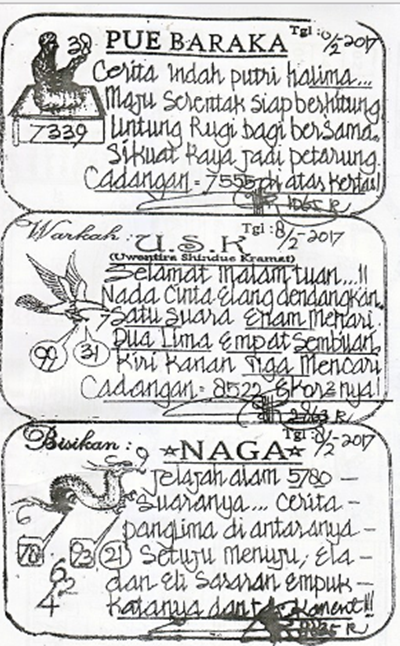 PUE BARAKA
Tgl: 8/2-2017
38
7339
Cerita Indah putri halima...
Maju Serentak siap berhitung
Untung Rugi bagi bersama.
Si kuat Kaya jadi petarung.
Cadangan = 7555 di atas Kertas!
Warkah :
U.S.K
(Uwentira Shindue Kramat)
Tgl : 8/2-2017
Selamat Malam tuan...!!
Nada Cinta Elang dendangkan.
Satu Suara Enam Menari.
Dua Lima Empat Sembilan,
Kiri Kanan Tiga Mencari
99 31
7
Cadangan = 8522 Ekor2nya!
Bisikan :
☆NAGA☆
Tgl : 8/2-2017
9
Jelajah alam 5780 —
Suaranya... Cerita —
panglima di antaranya —
70 93 21
Setuju Menuju, Ela —
6 2
4
dan Eli Sasaran Empuk —
Katanya dan